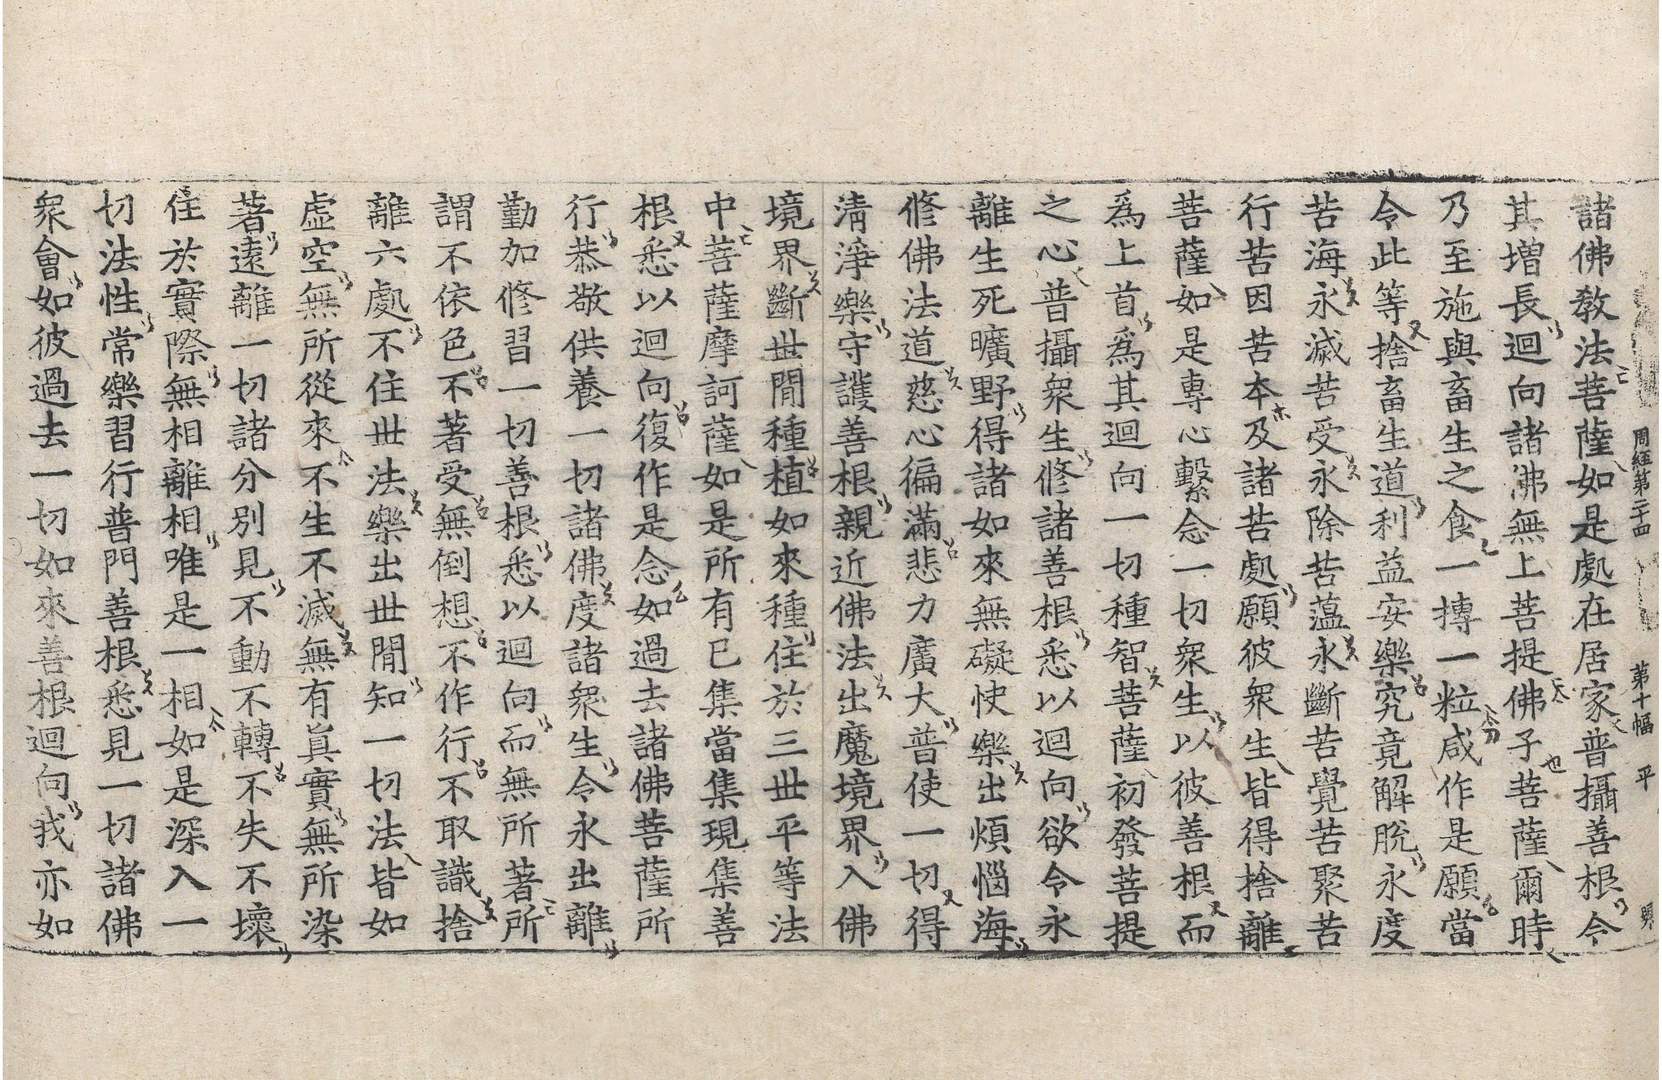 周經第二十四 第十幅 平
諸佛教法菩薩如是處在居家普攝善根令
其增長迴向諸佛無上菩提佛子菩薩爾時
乃至施與畜生之食一摶一粒咸作是願當
令此等捨畜生道利益安樂究竟解脫永度
苦海永滅苦受永除苦薀永斷苦覺苦聚苦
行苦因苦本及諸苦處願彼衆生皆得捨離
菩薩如是專心繫念一切衆生以彼善根而
爲上首爲其迴向一切種智菩薩初發菩提
之心普攝衆生修諸善根悉以迴向欲令永
離生死曠野得諸如來無礙快樂出煩惱海
修佛法道慈心徧滿悲力廣大普使一切得
淸淨樂守護善根親近佛法出魔境界入佛
境界斷世閒種植如來種住於三世平等法
中菩薩摩訶薩如是所有已集當集現集善
根悉以迴向復作是念如過去諸佛菩薩所
行恭敬供養一切諸佛度諸衆生令永出離
勤加修習一切善根悉以迴向而無所著所
謂不依色不著受無倒想不作行不取識捨
離六處不住世法樂出世閒知一切法皆如
虛空無所從來不生不滅無有眞實無所染
著遠離一切諸分別見不動不轉不失不壞
住於實際無相離相唯是一相如是深入一
切法性常樂習行普門善根悉見一切諸佛
衆會如彼過去一切如來善根迴向我亦如